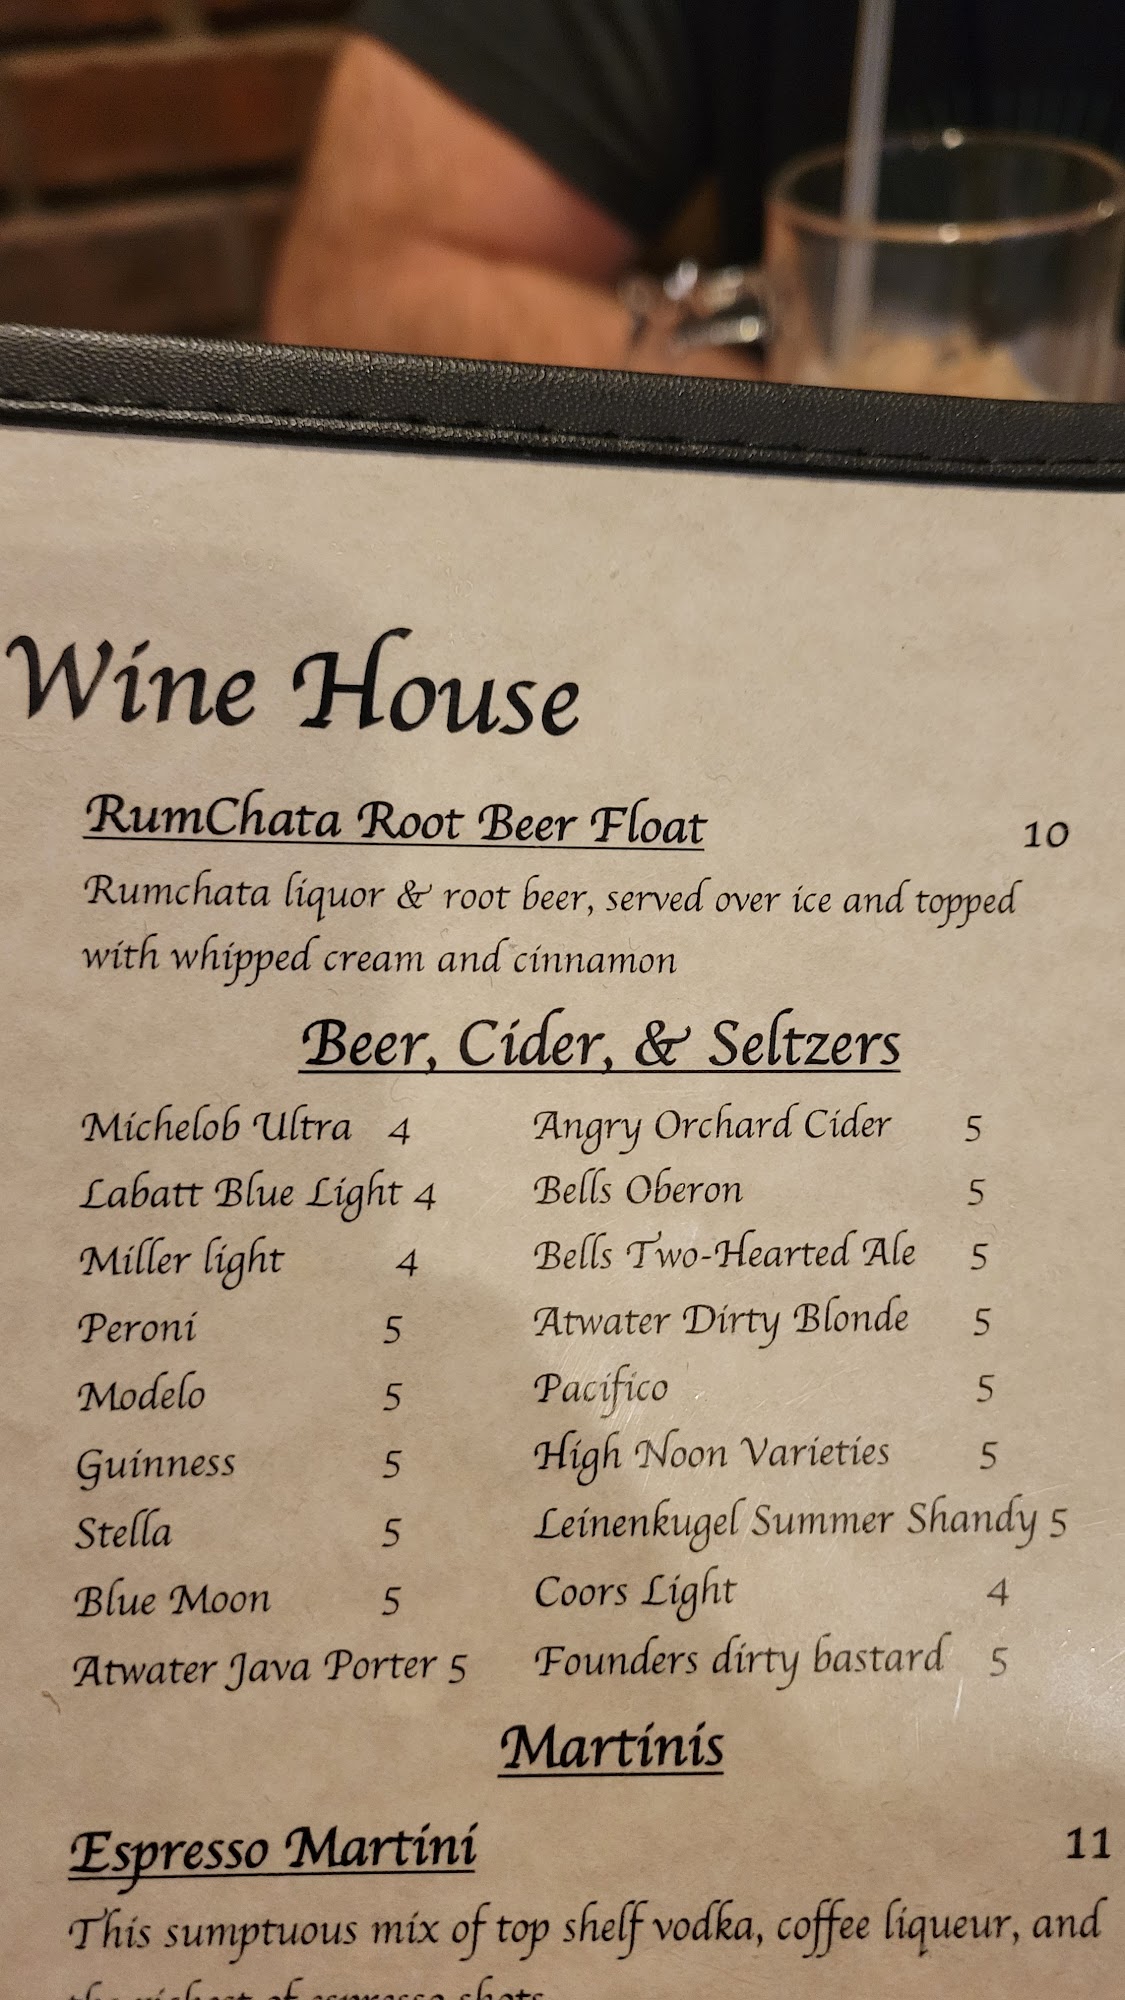 Wine House
RumChata Root Beer Float 10
Rumchata liquor & root beer, served over ice and topped
with whipped cream and cinnamon
Beer, Cider, & Seltzers
Michelob Ultra 4
Labatt Blue Light 4
Miller light 4
Peroni 5
Modelo 5
Guinness 5
Stella 5
Blue Moon 5
Atwater Java Porter 5
Angry Orchard Cider 5
Bells Oberon 5
Bells Two-Hearted Ale 5
Atwater Dirty Blonde 5
Pacifico 5
High Noon Varieties 5
Leinenkugel Summer Shandy 5
Coors Light 4
Founders dirty bastard 5
Martinis
Espresso Martini 11
This sumptuous mix of top shelf vodka, coffee liqueur, and
the richest of espresso shots